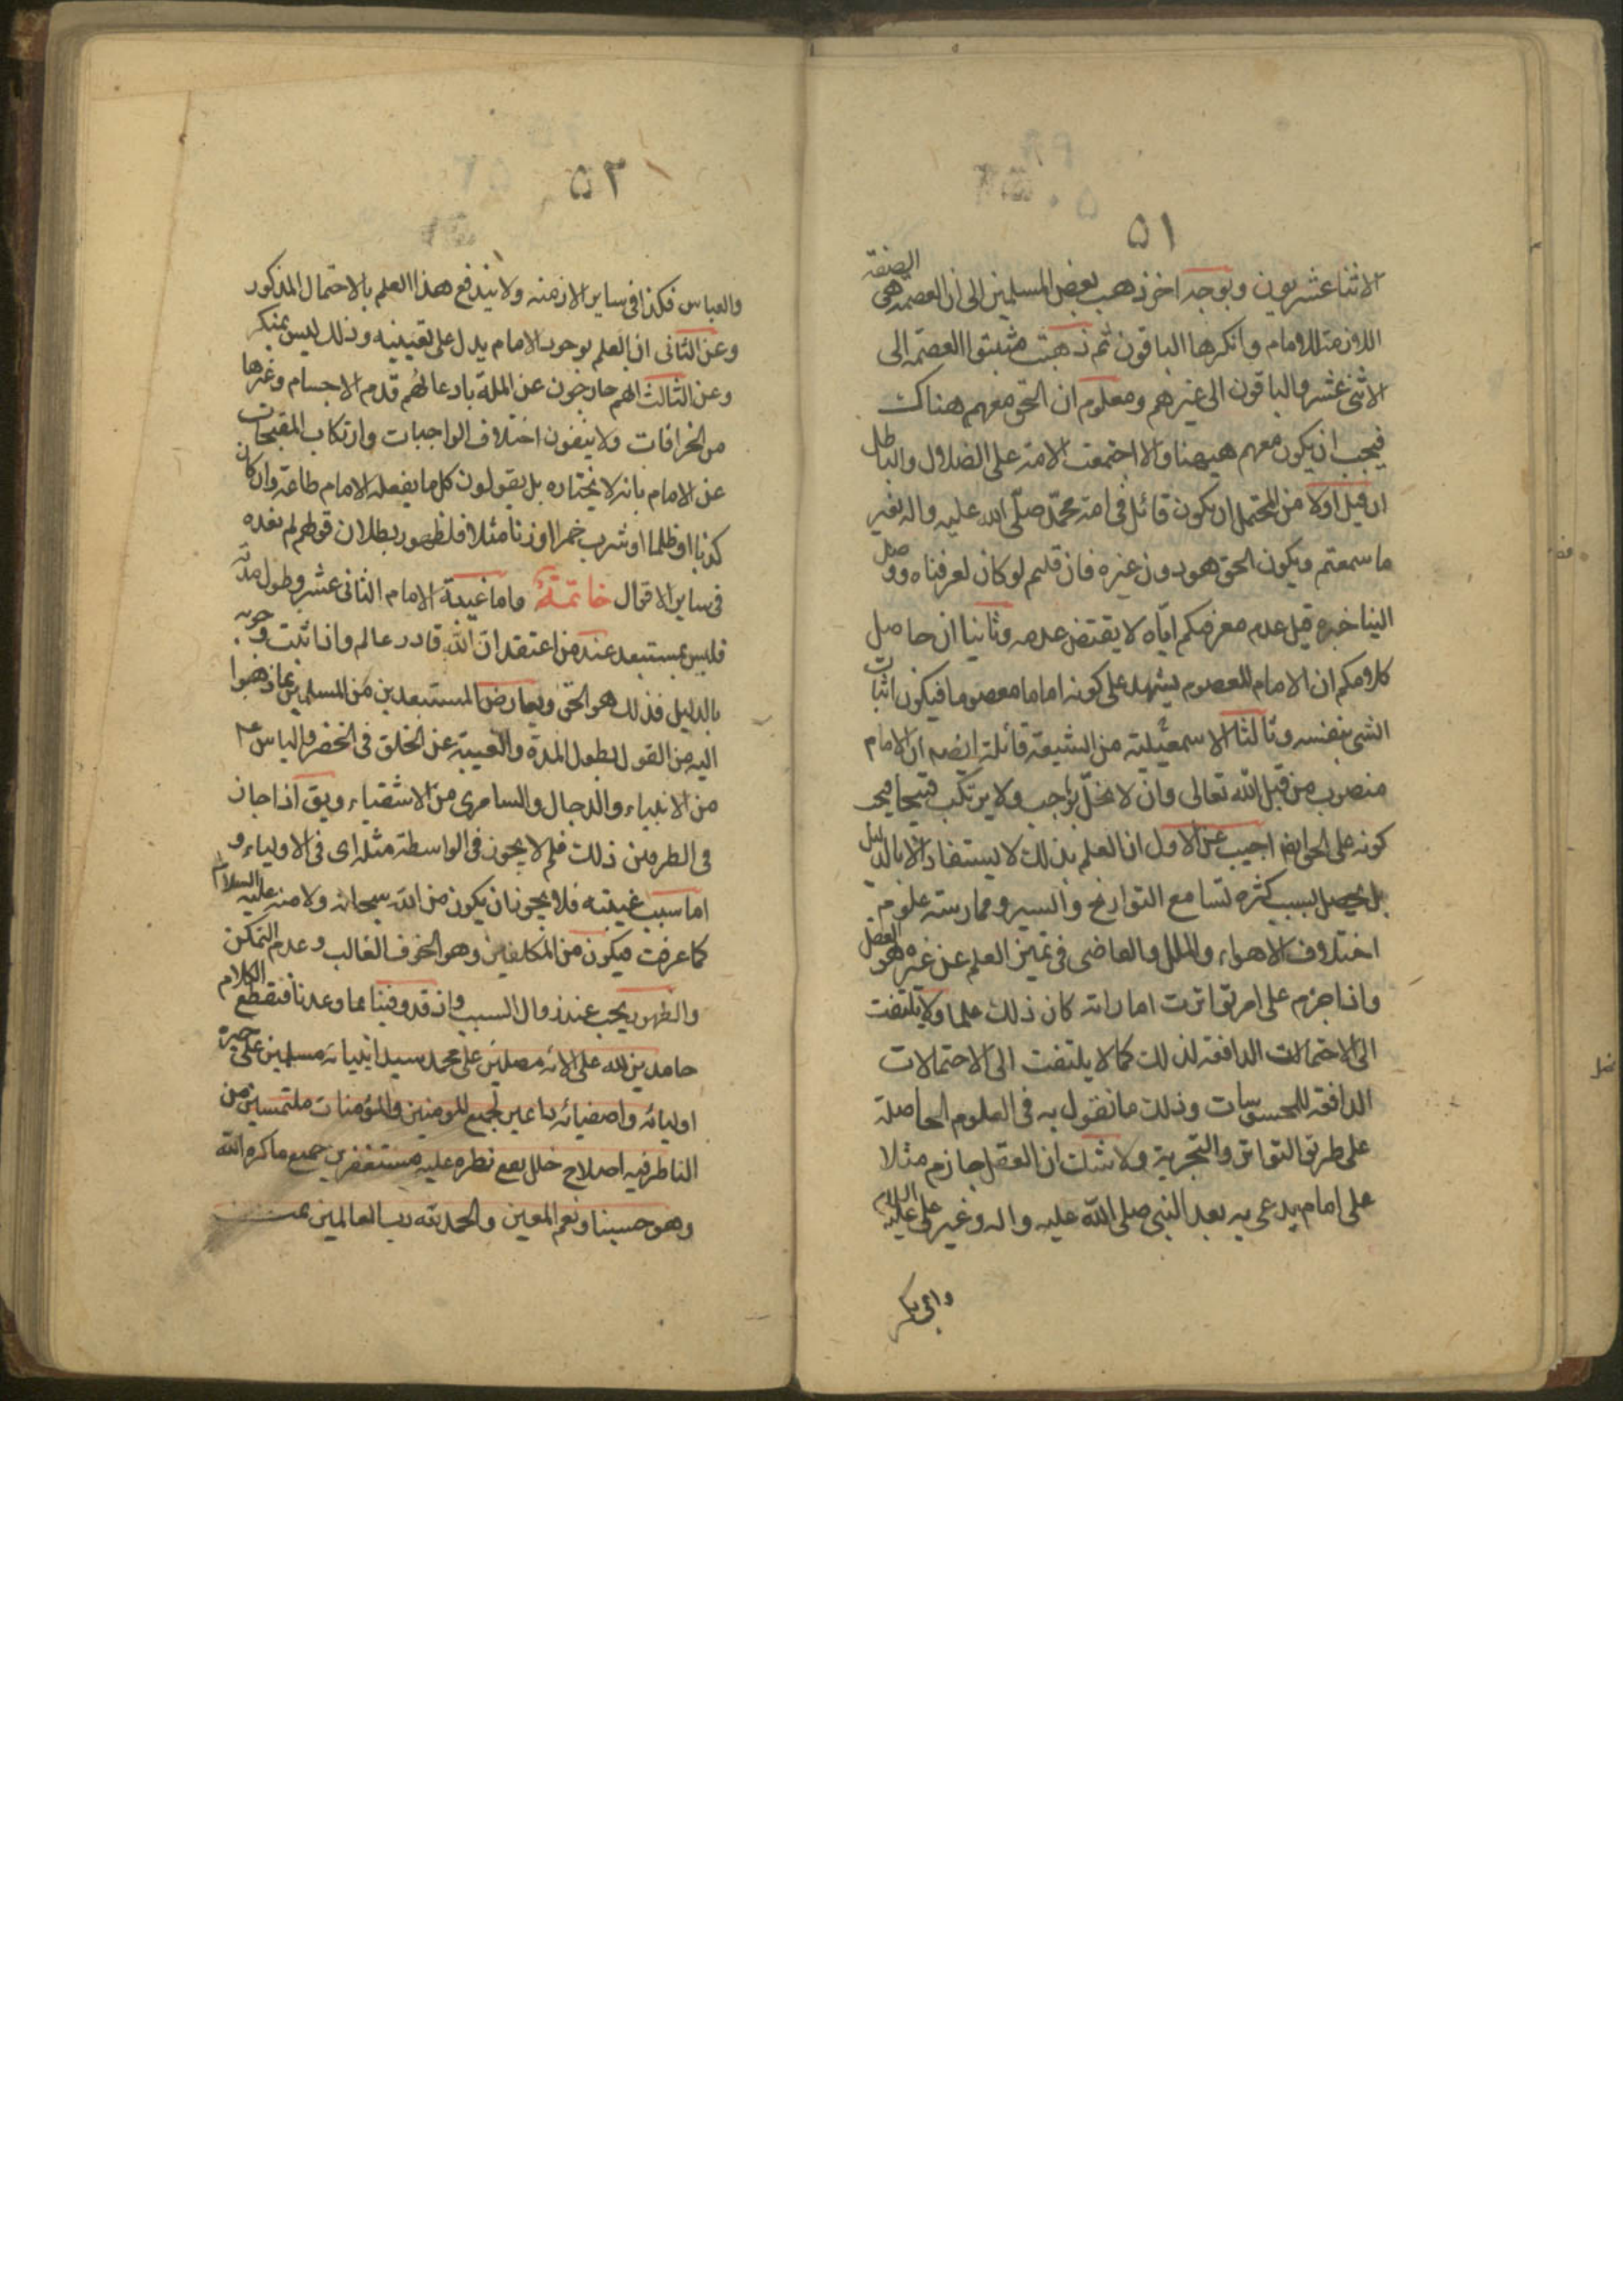 ٥١
الاثناعشريون وبوجه اخر ذهب بعض المسلمين الى ان العصمة هى الصفة
اللازمة للامام وانكرها الباقون ثم ذهبت مثبتوا العصمة الى
الاثنى عشر والباقون الى غيرهم ومعلوم ان الحق معهم هناك
فيجب ان يكون معهم هيهنا والا اجتمعت الامة على الضلال والباطل
ان قيل اولا من المحتمل ان يكون قائل فى امة محمد صلى الله عليه واله بغير
ما سمعتم ويكون الحق هو دون غيره فان قلتم لو كان لعرفناه ووصل
الينا خبره قيل عدم معرفتكم اياه لا يقتضى عدمه وثانيا ان حاصل
كلامكم ان الامام المعصوم يشهد على كونه اماما معصوما فيكون اثبات
الشى بنفسه وثالثا الاسمعيلية من الشيعة قائلة ايضه ان الامام
منصوب من قبل الله تعالى وان لا يخل بواجب ولا يرتكب قبيحا فيجب
كونه على الحق ايضه اجيب عن الاول ان العلم بذلك لا يستفاد الا بالدليل
بل يحصل بسبب كثرة تسامع التواريخ والسير وممارسة علوم
اختلاف الاهواء والملل والقاضى فى تميز العلم عن غيره هو العقل
واذا جزم على امر تواترت اماراته كان ذلك علما ولا يلتفت
الى الاحتمالات الدافعة لذلك كما لا يلتفت الى الاحتمالات
الدافعة للمحسوسات وذلك ما نقول به فى العلوم الحاصلة
على طرق التواتر والتجربة ولا شك ان العقل جازم مثلا
على امام يدعى به بعد النبى صلى الله عليه واله وغير على عليه السلام
وابى بكر
٥٢
والعباس فكذا فى ساير الازمنه ولا يندفع هذا العلم بالاحتمال المذكور
وعن الثانى ان العلم بوجود الامام يدل على تعيينه وذلك ليس بمنكر
وعن الثالث انهم خارجون عن الملة بادعائهم قدم الاجسام وغيرها
من الخرافات ولا ينفون اختلاف الواجبات وارتكاب المقبحات
عن الامام بانه لا يختاره بل يقولون كل ما يفعله الامام طاعة وان كان
كذبا او ظلما او شرب خمرا او زنا مثلا فلظهور بطلان قولهم لم نعده
فى ساير الاقوال خاتمة واما غيبة الامام الثانى عشر وطول مدته
فليس بمستبعد عند من اعتقد ان الله قادر عالم واذا ثبت وجوبه
بالدليل فذلك هو الحق ويعارض المستبعدين من المسلمين بما ذهبوا
اليه من القول بطول المدة والغيبة عن الخلق فى الخضر والياس عم
من الانبياء والدجال والسامرى من الاشقياء ويق اذا جاز
فى الطرفين ذلك فلم لا يجوز فى الواسطة مثله اى فى الاولياء و
اما سبب غيبته فلا يجوز ان يكون من الله سبحانه ولا منه عليه السلام
كما عرفت فيكون من المكلفين وهو الخوف الغالب وعدم التمكن
والظهور يجب عند زوال السبب واذ قد وفينا بما وعدنا فنقطع الكلام
حامدين لله على الائه مصلين على محمد سيد انبيائه مسلمين على خيرة
اوليائه واصفيائه داعين لجميع المومنين والمؤمنات ملتمسين من
الناظر فيه اصلاح خلل يقع نظره عليه مستغفرين جميع ما كره الله
وهو حسبنا ونعم المعين والحمد لله رب العالمين تمت